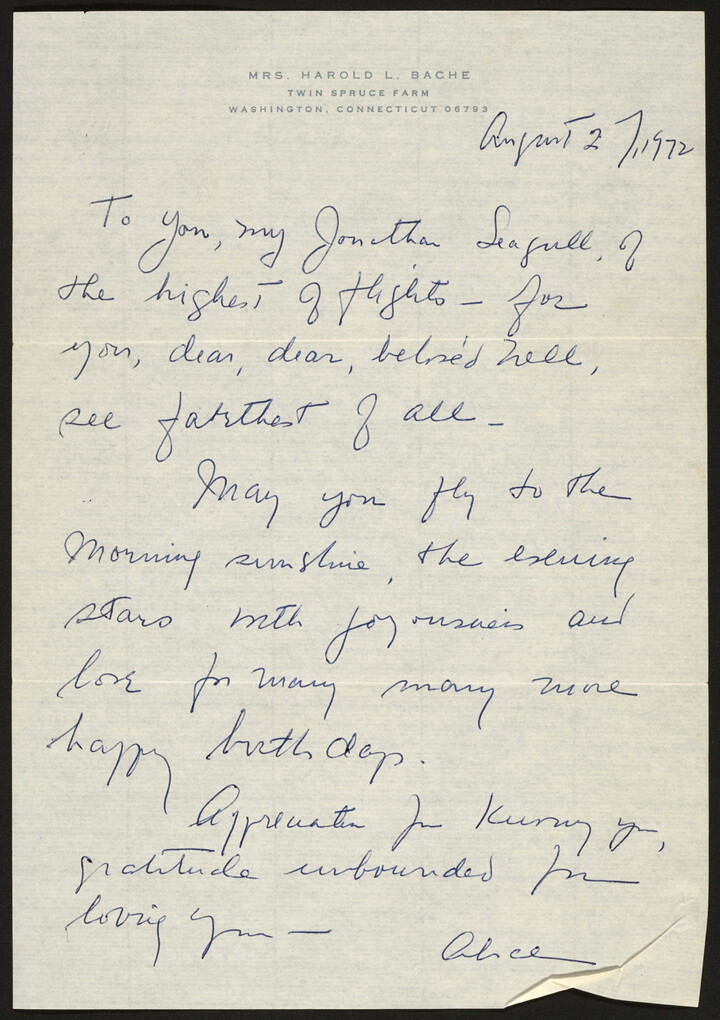 MRS. HAROLD L. BACHE
TWIN SPRUCE FARM
WASHINGTON, CONNECTICUT 06793
August 27, 1972
To you, my Jonathan Seagull, of
the highest of flights — for
you, dear, dear, beloved Nell,
see farthest of all —
May you fly to the
morning sunshine, the evening
stars with joyousness and
love for many many more
happy birthdays.
Appreciation for knowing you,
gratitude unbounded for
loving you —
Alice